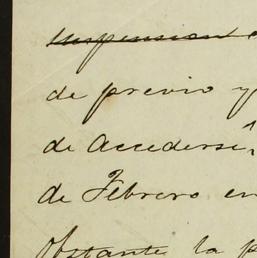 suspension
de previo y
de Accederse
de Febrero en
obstante la p